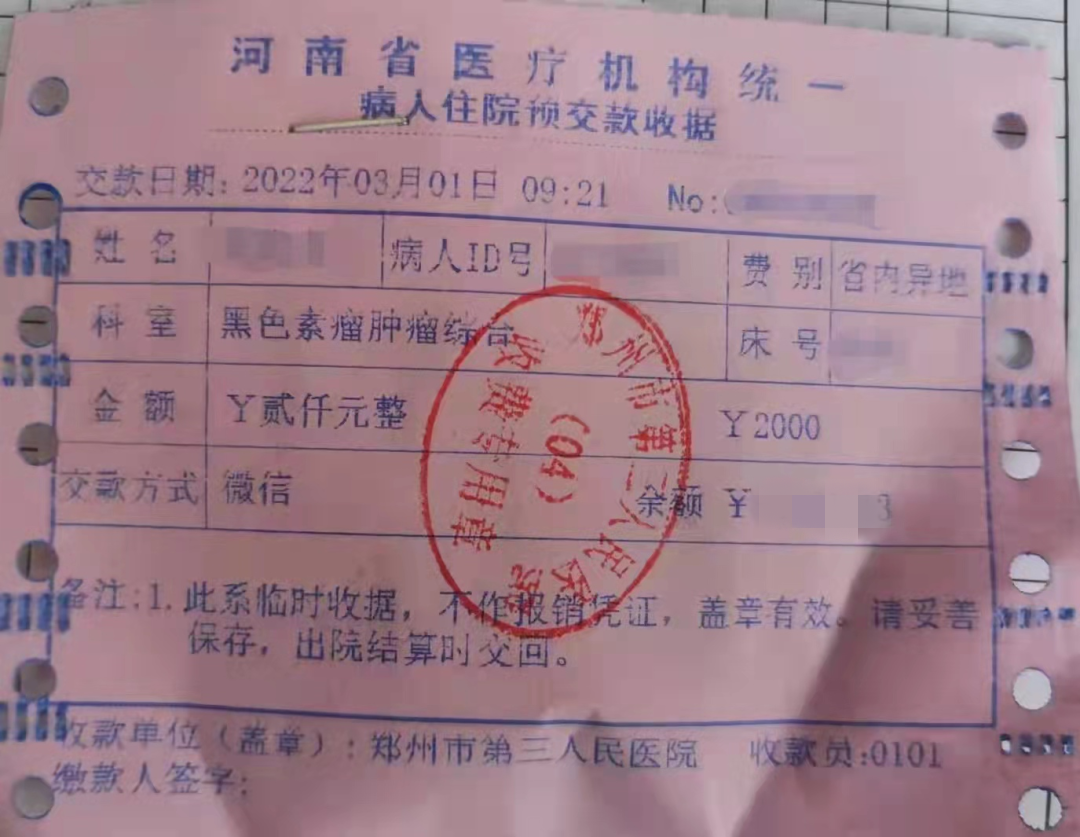 河南省医疗机构统一
病人住院预交款收据
交款日期: 2022年03月01日 09:21 No:
姓名 病人ID号 费别 省内异地
科室 黑色素瘤肿瘤综合 床号
金额 ¥贰仟元整 ¥2000
交款方式 微信 余额 ¥ 3
备注:1.此系临时收据，不作报销凭证，盖章有效。请妥善
保存，出院结算时交回。
收款单位（盖章）: 郑州市第三人民医院 收款员:0101
缴款人签字:
郑州市第三人民医院
(04)
收费专用章